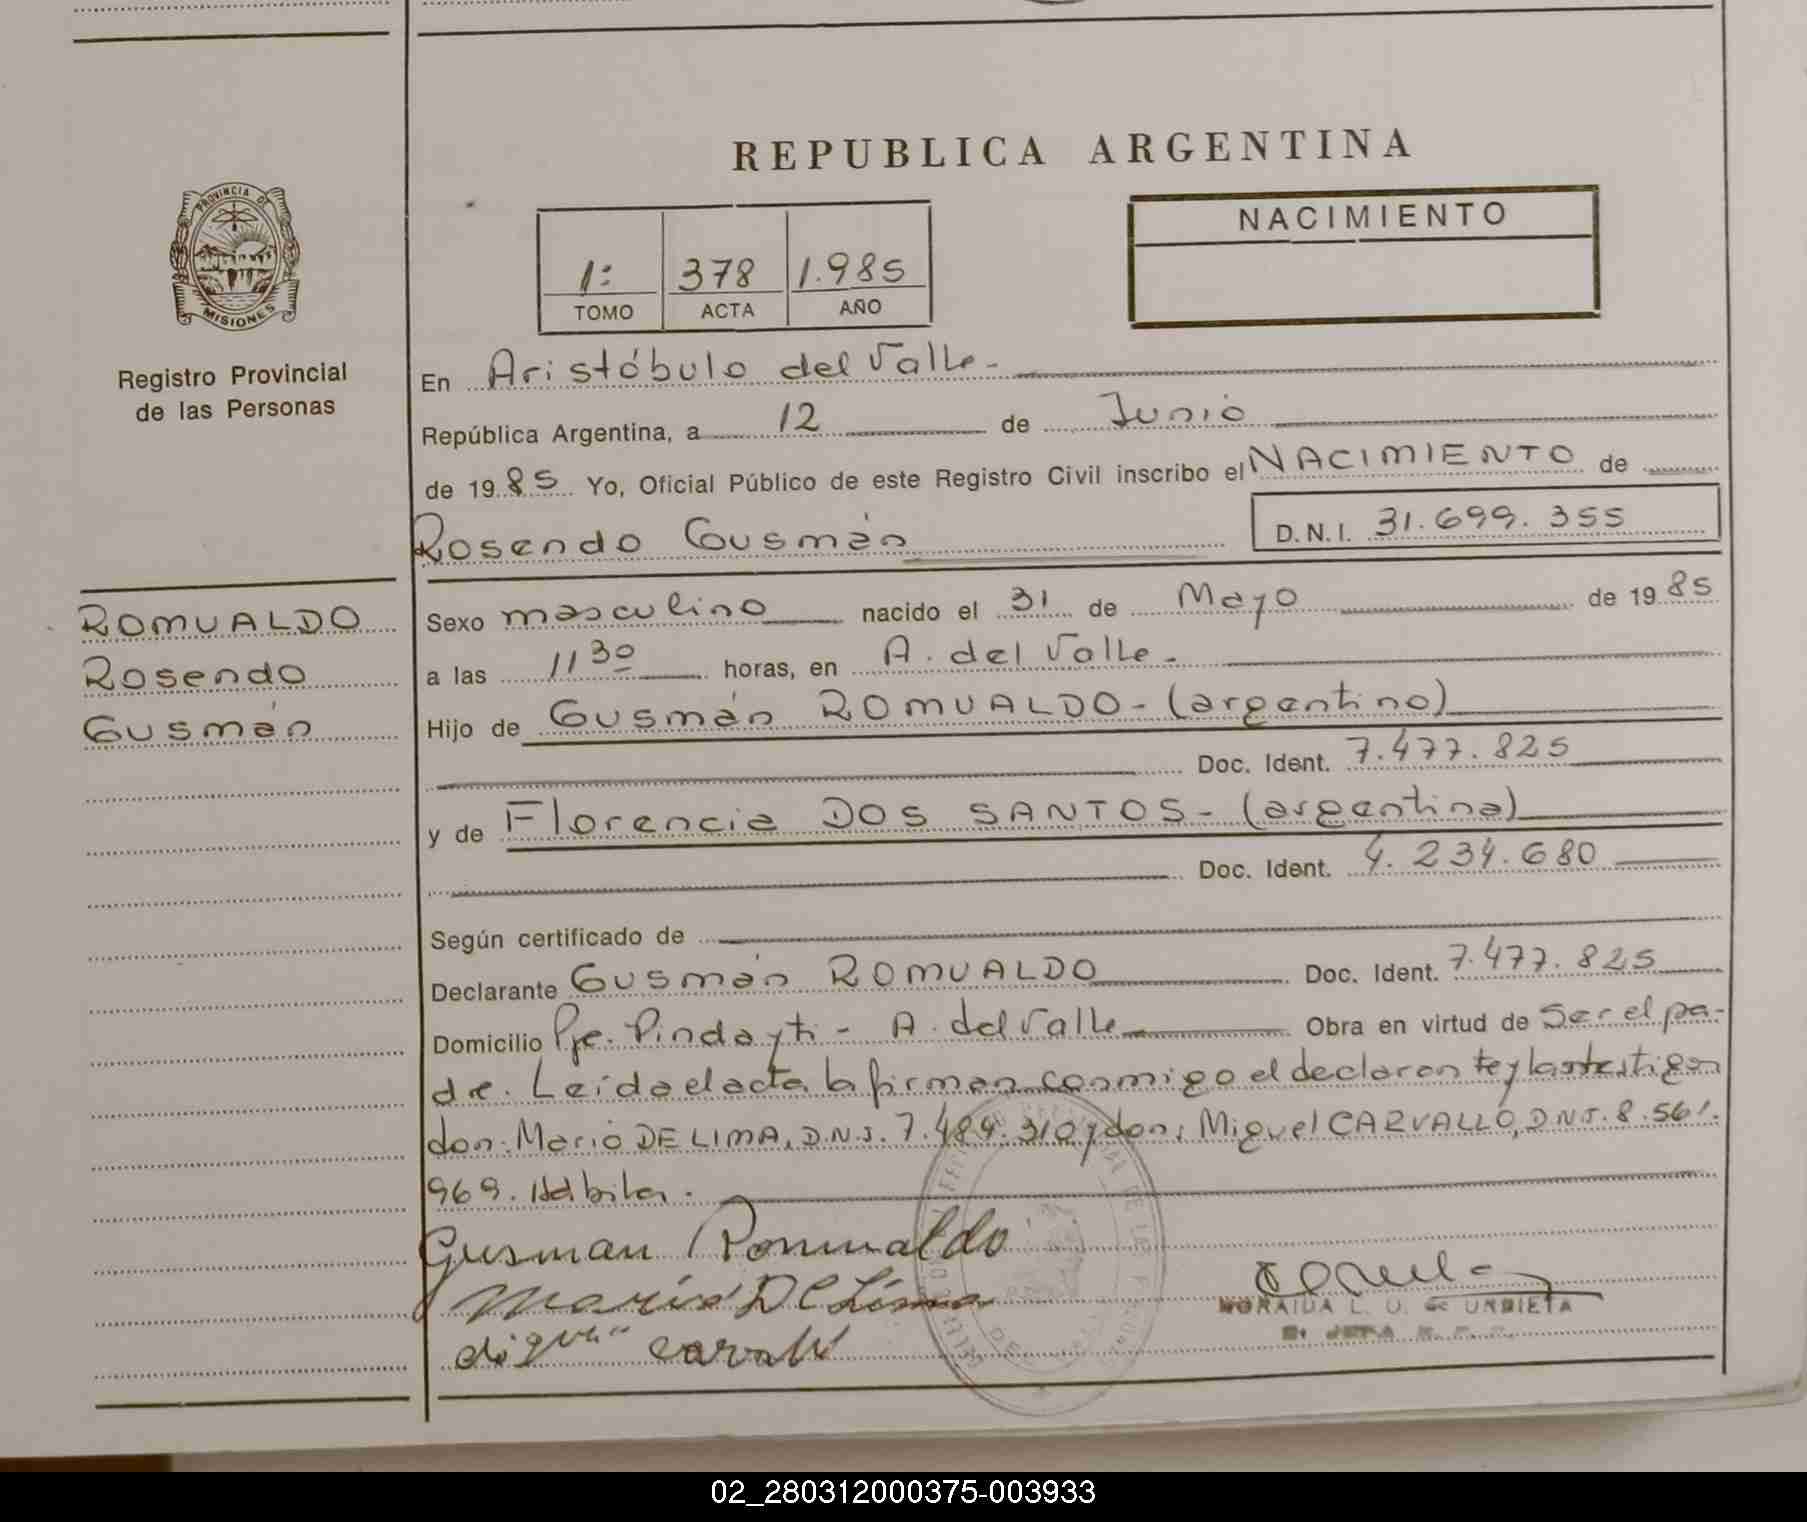 REPUBLICA ARGENTINA
PROVINCIA DE
MISIONES
Registro Provincial
de las Personas
1: 378 1.985
TOMO ACTA AÑO
NACIMIENTO
En Aristóbulo del Valle.-
República Argentina, a 12 de Junio
de 1985 Yo, Oficial Público de este Registro Civil inscribo el NACIMIENTO de
Rosendo Gusmán D.N.I. 31.699.355
ROMUALDO
Rosendo
Gusmán
Sexo masculino nacido el 31 de Mayo de 1985
a las 11 30 horas, en A. del Valle.-
Hijo de Gusmán ROMUALDO-(argentino)
Doc. Ident. 7.477.825
y de Florencia DOS SANTOS-(argentina)
Doc. Ident. 4.234.680
Según certificado de
Declarante Gusmán ROMUALDO Doc. Ident. 7.477.825
Domicilio Pje. Pindayti - A. del Valle Obra en virtud de Ser el pa-
dre. Leida el acta la firman conmigo el declarante y los testigos
don: Mario DE LIMA, D.N.J. 7.484.310 y don: Miguel CARVALLO, D.N.J. 8.561.
969. Habiles.
Gusman Romualdo
Mario De Lima
NORAIDA L. U. de URDIETA
02_280312000375-003933